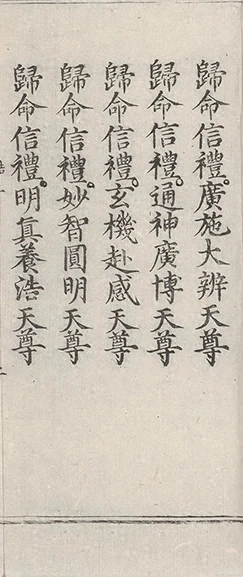 歸命信禮。廣施大辨天尊
歸命信禮。通神廣博天尊
歸命信禮。玄機赴感天尊
歸命信禮。妙智圓明天尊
歸命信禮。明真養浩天尊